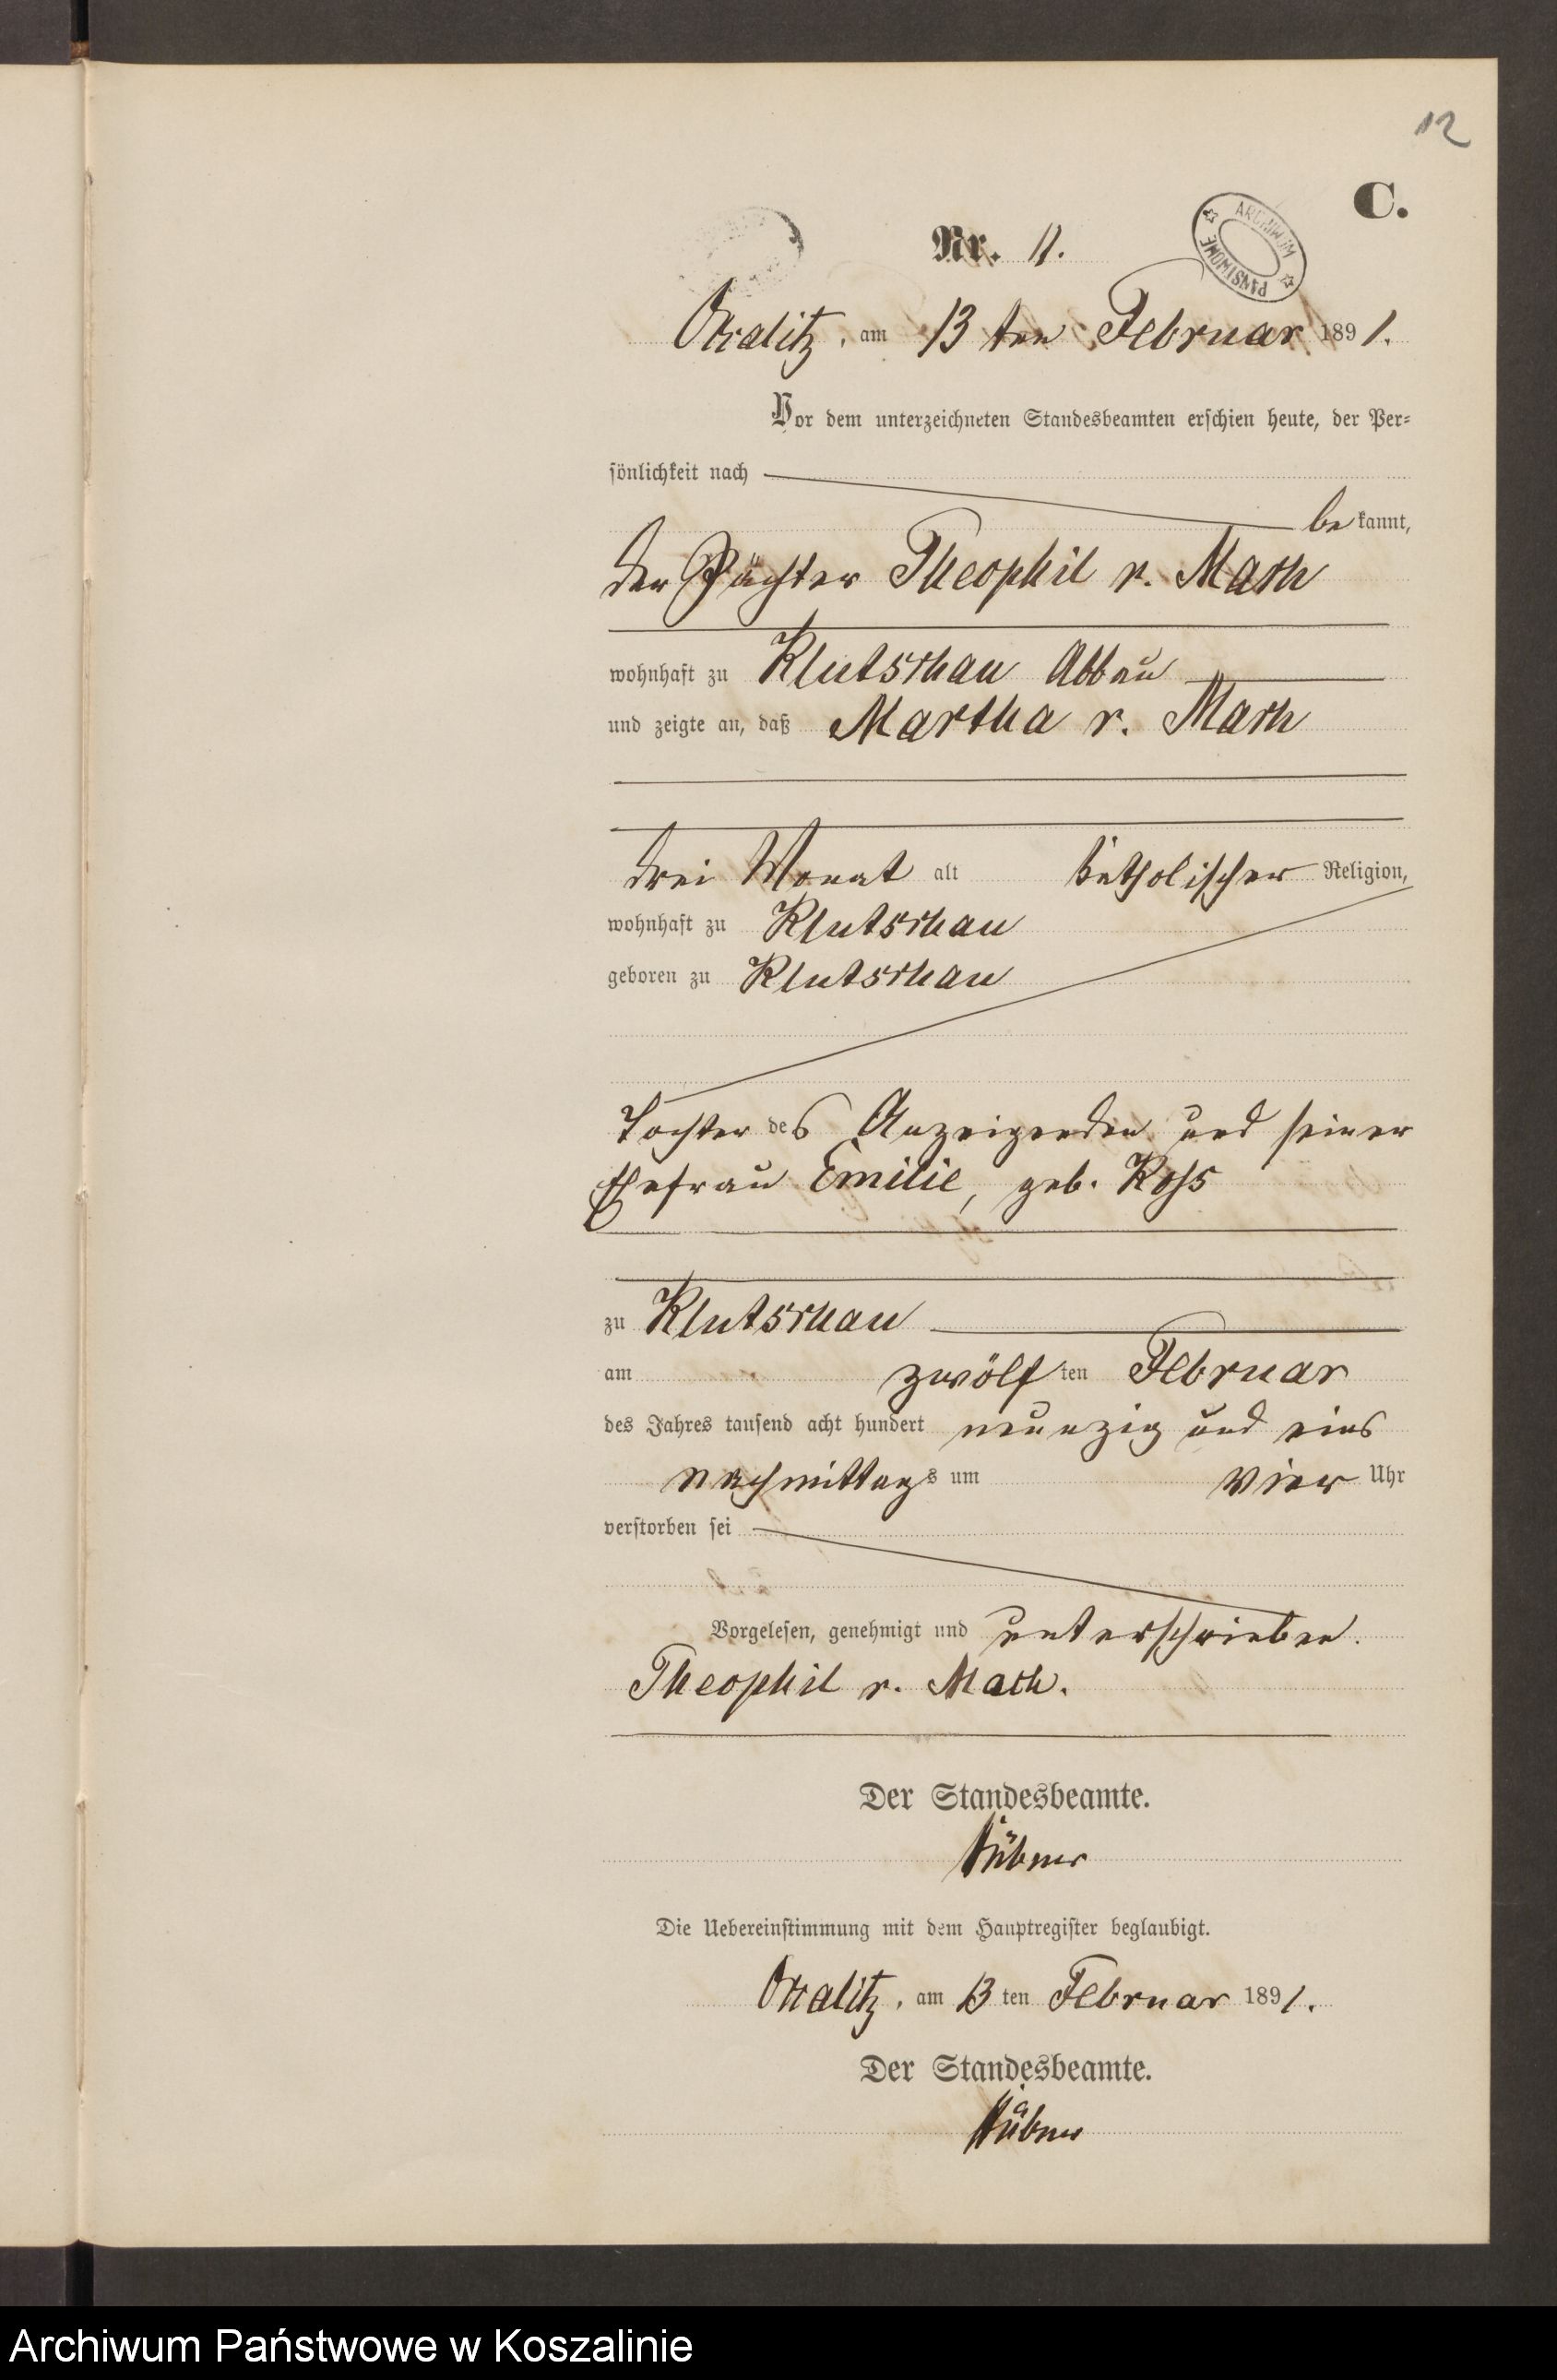 12
C.
ARCHIWUM PAŃSTWOWE
Nr. 11.
Occalitz, am 13 ten Februar 1891.
Vor dem unterzeichneten Standesbeamten erschien heute, der Per-
sönlichkeit nach
bekannt,
der Pächter Theophil v. Mach
wohnhaft zu Klutschau Abbau
und zeigte an, daß Martha v. Mach
drei Monat alt katholischer Religion,
wohnhaft zu Klutschau
geboren zu Klutschau
Tochter des Anzeigenden und seiner
Ehefrau Emilie, geb. Koss
zu Klutschau
am zwölften Februar
des Jahres tausend acht hundert neunzig und eins
nachmittags um vier Uhr
verstorben sei
Vorgelesen, genehmigt und unterschrieben.
Theophil v. Mach.
Der Standesbeamte.
Hübner
Die Uebereinstimmung mit dem Hauptregister beglaubigt.
Occalitz, am 13 ten Februar 1891.
Der Standesbeamte.
Hübner
Archiwum Państwowe w Koszalinie